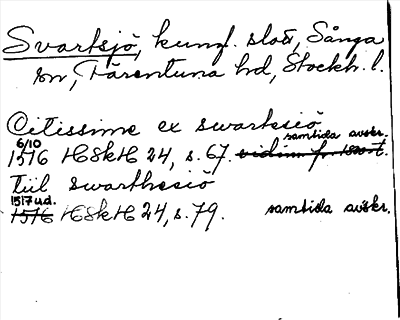 Svartsjö, kungl. slott, Sånga
sn, Färentuna hd, Stockh. l.
Citissime ex swartesiö
6/10 samtida avskr.
1516 HSkH 24, s. 67. vidim fr. 1500-t.
tiil swarthesiö
1517 u.d.
1516 HSkH 24, s. 79. samtida avskr.